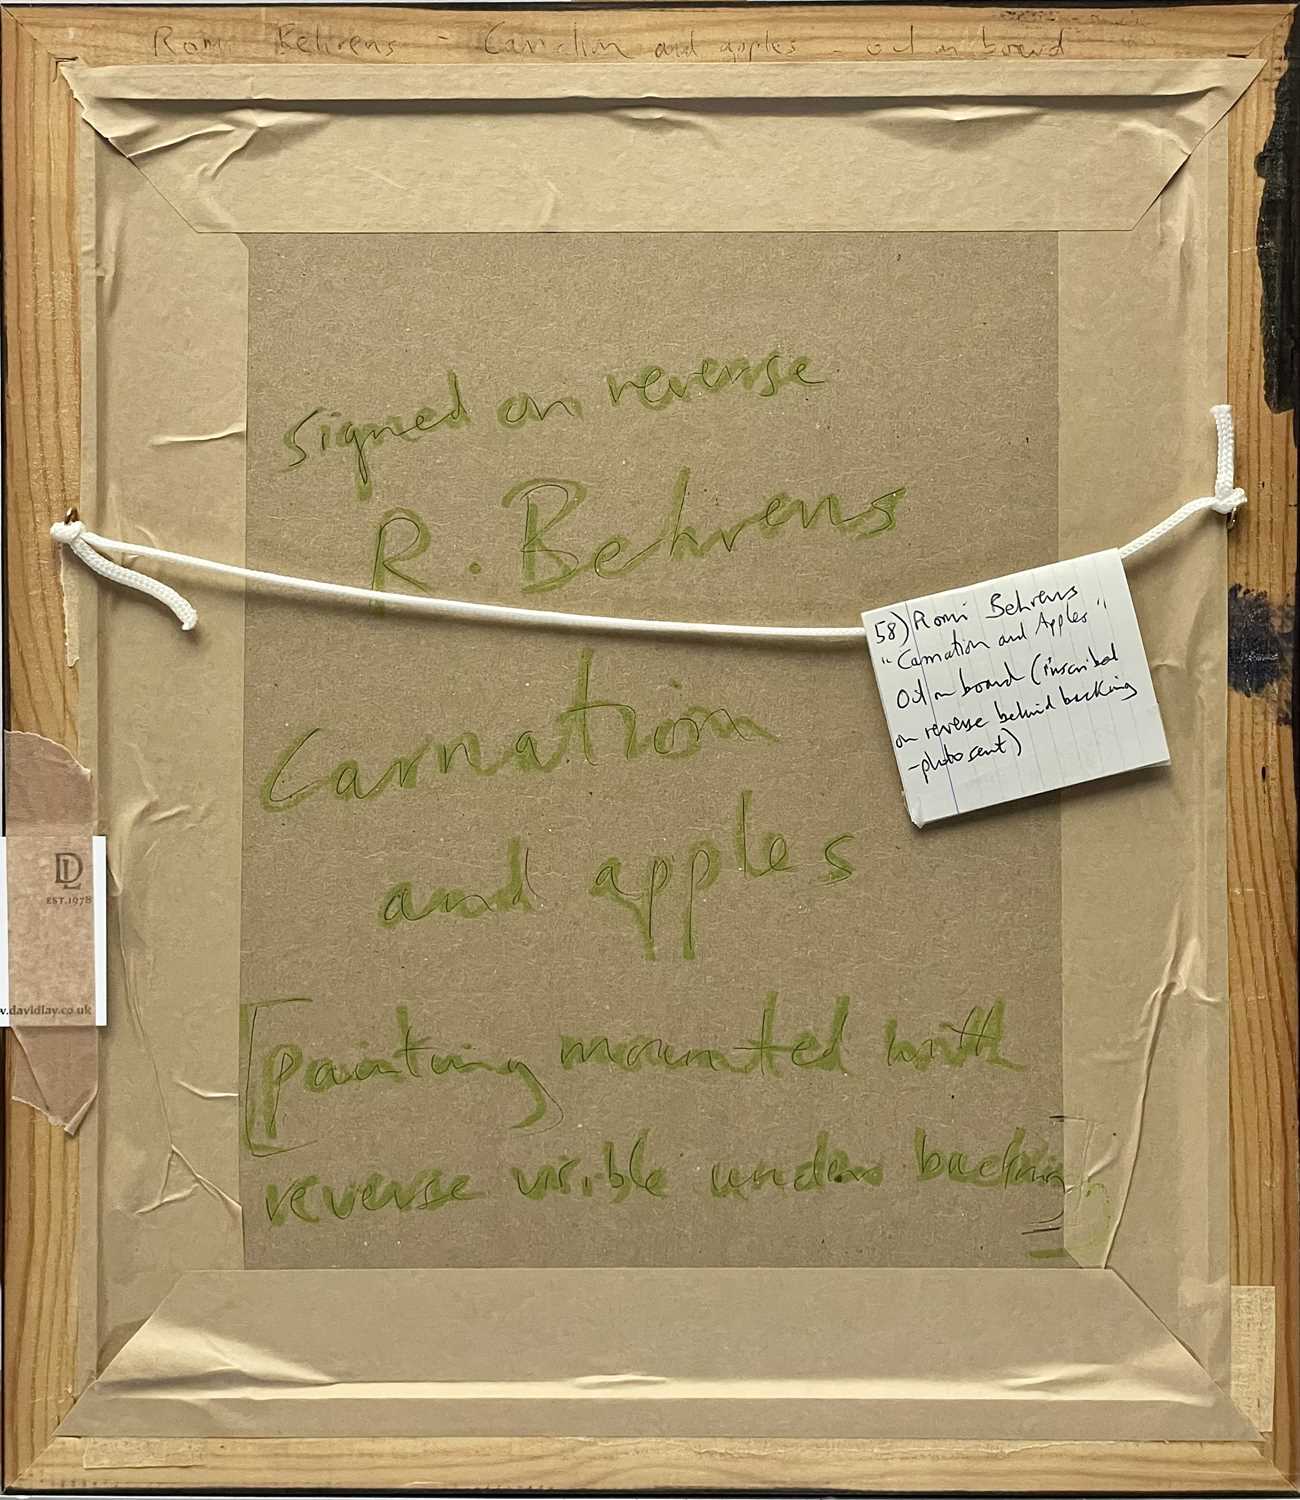 Romi Behrens - Carnation and apples - oil on board
signed on reverse
R. Behrens
Carnation
and apples
[painting mounted with
reverse visible under backing]
58) Romi Behrens
"Carnation and Apples"
Oil on board (inscribed
on reverse behind backing
-photo sent)
DL
EST.1978
v.davidlay.co.uk